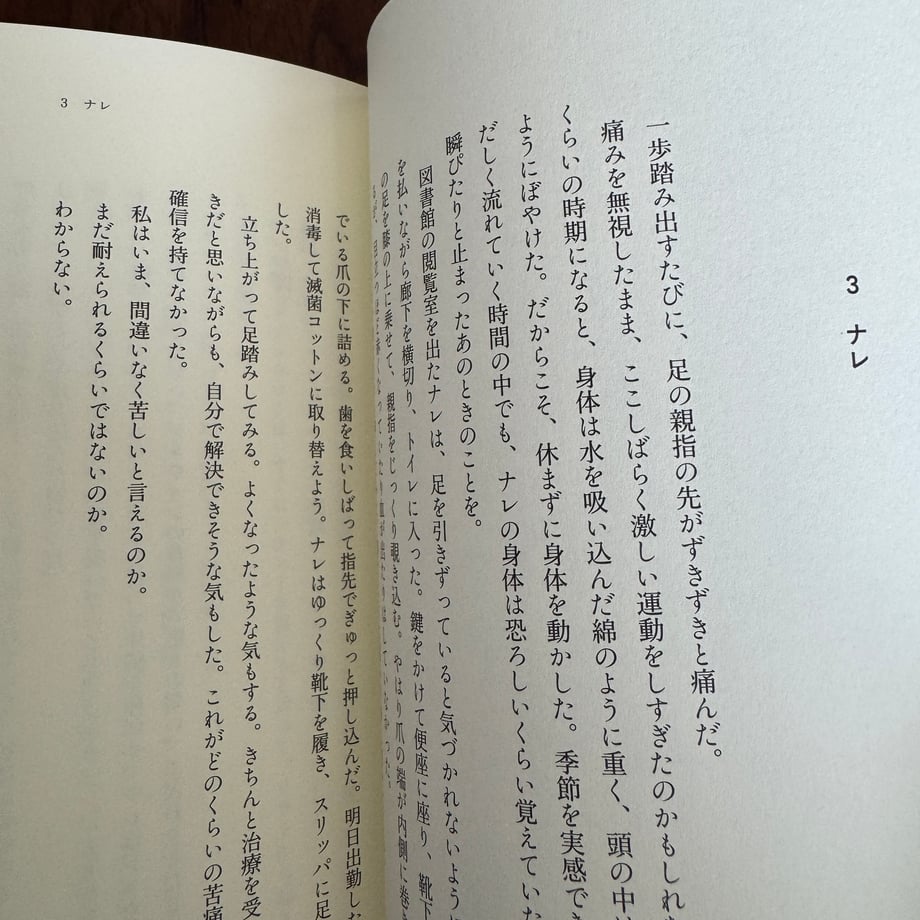 3 ナレ
一歩踏み出すたびに、足の親指の先がずきずきと痛んだ。
痛みを無視したまま、ここしばらく激しい運動をしすぎたのかもしれ
くらいの時期になると、身体は水を吸い込んだ綿のように重く、頭の中
ようにぼやけた。だからこそ、休まずに身体を動かした。季節を実感でき
だしく流れていく時間の中でも、ナレの身体は恐ろしいくらい覚えていた
瞬ぴたりと止まったあのときのことを。
図書館の閲覧室を出たナレは、足を引きずっていると気づかれないよう
を払いながら廊下を横切り、トイレに入った。鍵をかけて便座に座り、靴下
の足を膝の上に乗せて、親指をじっくり覗き込む。やはり爪の端が内側に巻き
3 ナレ
でいる爪の下に詰める。歯を食いしばって指先でぎゅっと押し込んだ。明日出勤した
消毒して滅菌コットンに取り替えよう。ナレはゆっくり靴下を履き、スリッパに足
した。
立ち上がって足踏みしてみる。よくなったような気もする。きちんと治療を受
きだと思いながらも、自分で解決できそうな気もした。これがどのくらいの苦痛
確信を持てなかった。
私はいま、間違いなく苦しいと言えるのか。
まだ耐えられるくらいではないのか。
わからない。